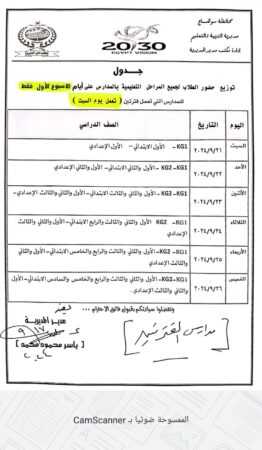 محافظة سوهاج
مديرية التربية والتعليم
إدارة مكتب مدير المديرية
20/30
EGYPT VISION
جدول
توزيع حضور الطلاب لجميع المراحل التعليمية بالمدارس على أيام الاسبوع الأول فقط
للمدارس التي تعمل فترتين ( تعمل يوم السبت )
اليوم التاريخ الصف الدراسي
السبت ٢٠٢٤/٩/٢١ KG1- الأول الابتدائي- الأول الإعدادي
الأحد ٢٠٢٤/٩/٢٢ KG2-KG1 - الأول والثاني الابتدائي- الأول الإعدادي
الأثنين ٢٠٢٤/٩/٢٣ KG2-KG1- الأول والثاني والثالث الابتدائي- الأول والثاني الإعدادي
الثلاثاء ٢٠٢٤/٩/٢٤ KG2-KG1- الأول والثاني والثالث والرابع الابتدائي- الأول والثاني والثالث
الإعدادي
الأربعاء ٢٠٢٤/٩/٢٥ KG2-KG1- الأول والثاني والثالث والرابع والخامس الابتدائي- الأول والثاني
والثالث الإعدادي
الخميس ٢٠٢٤/٩/٢٦ KG2-KG1- الأول والثاني والثالث والرابع والخامس والسادس الابتدائي- الأول
والثاني والثالث الإعدادي
وتفضلوا سيادتكم بقبول فائق الاحترام ،،،،
مدير المديرية
مدارس الفترتين
[ ياسر محمود محمد ]
الممسوحة ضوئيا بـ CamScanner